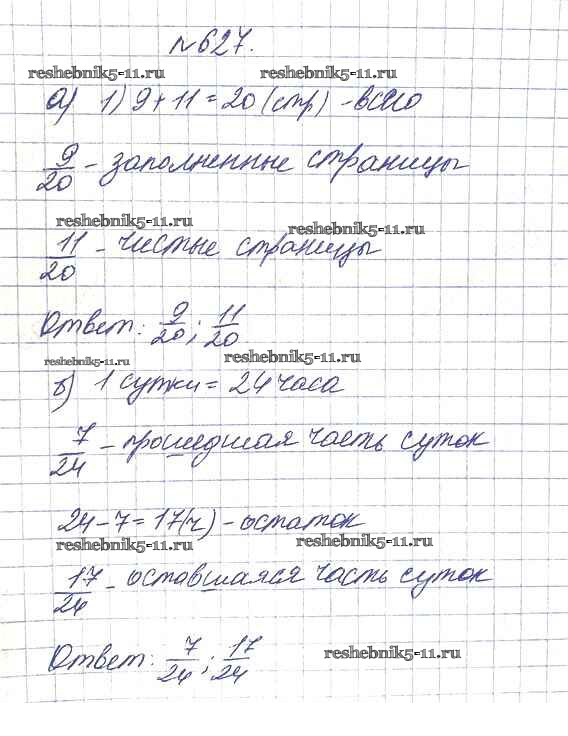 №627.
reshebnik5-11.ru reshebnik5-11.ru
а) 1) 9+11=20 (стр) - всего
9/20 - заполненные страницы
reshebnik5-11.ru reshebnik5-11.ru
11/20 - чистые страницы
Ответ: 9/20; 11/20
reshebnik5-11.ru reshebnik5-11.ru
б) 1 сутки = 24 часа
7/24 - прошедшая часть суток
24-7=17(ч) - остаток
reshebnik5-11.ru reshebnik5-11.ru
17/24 - оставшаяся часть суток
Ответ: 7/24; 17/24
reshebnik5-11.ru